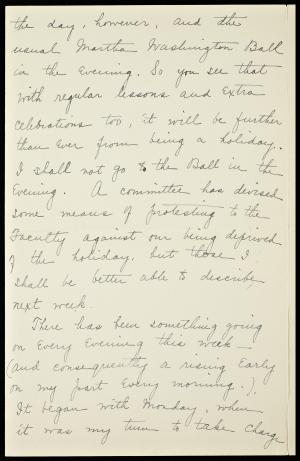 the day, however, and the
usual Martha Washington Ball
in the Evening. So you see that
with regular lessons and Extra
celebrations too, it will be further
than Ever from being a holiday.
I shall not go to the Ball in the
Evening. A committee has devised
some means of protesting to the
Faculty against our being deprived
of the holiday, but those I
shall be better able to describe
next week.
There has been something going
on Every Evening this week –
(and consequently a rising Early
on my part Every morning.).
It began with Monday, when
it was my turn to take charge